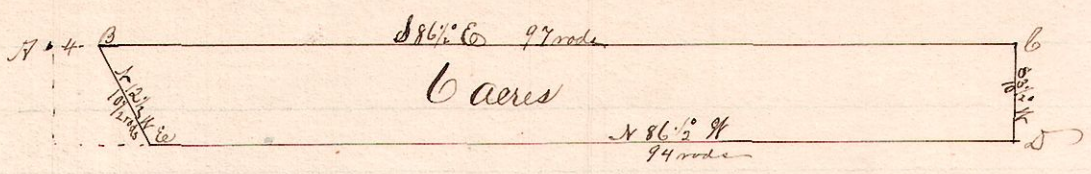 A 4 B S 86½° E 97 rods C
6 acres
N 12½ W
10½ rods
E
N 86½° W
94 rods
D
10